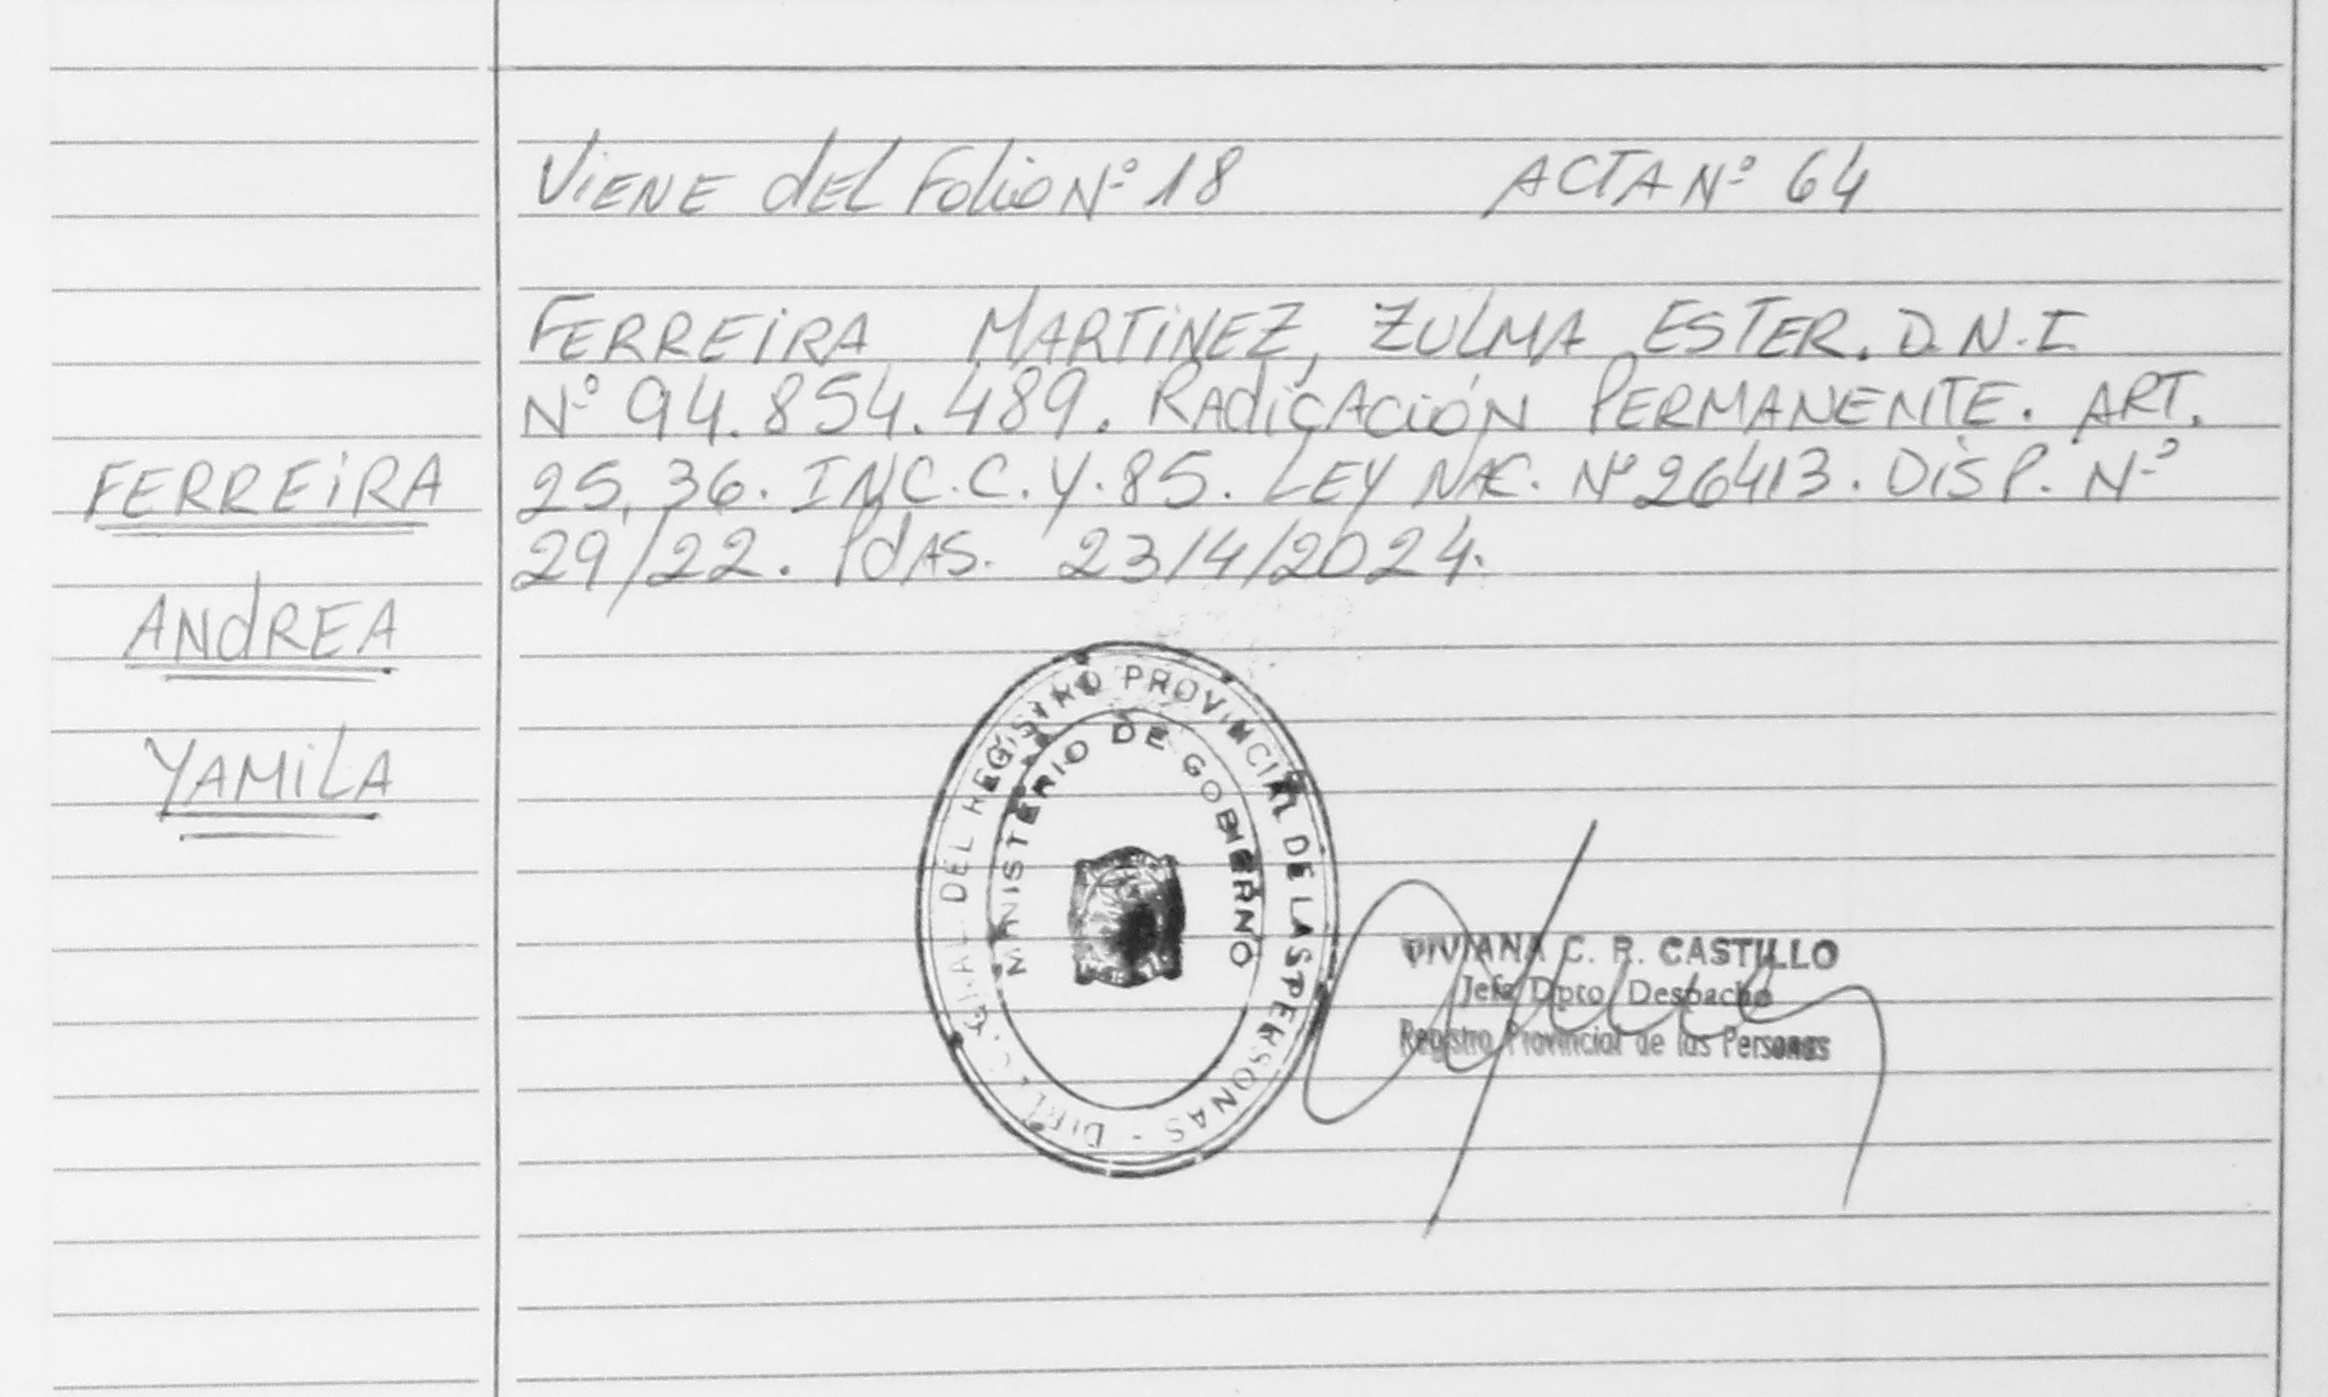 Viene del Folio Nº 18 ACTA Nº 64
FERREIRA MARTINEZ, ZULMA ESTER. D.N.I
Nº 94.854.489. Radicación PERMANENTE. ART.
25,36. INC.C.Y.85. LEY NAC. Nº 26413. DISP. Nº
29/22. PdAS. 23/4/2024.
FERREIRA
ANDREA
YAMILA
DEL REGISTRO PROVINCIAL DE LAS PERSONAS -
MINISTERIO DE GOBIERNO
VIVIANA C. R. CASTILLO
Jefa Dpto Despacho
Registro Provincial de las Personas